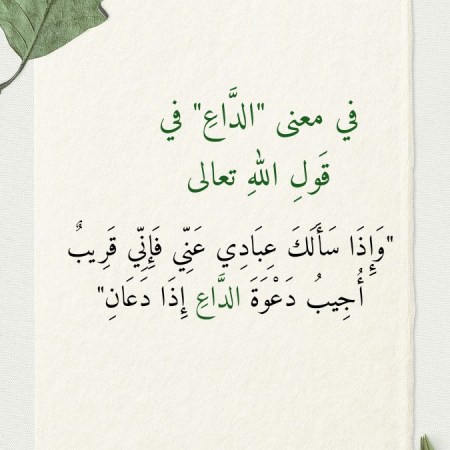 في معنى "الدَّاعِ" في
قَولِ اللهِ تعالى
"وَإِذَا سَأَلَكَ عِبَادِي عَنِّي فَإِنِّي قَرِيبٌ
أُجِيبُ دَعْوَةَ الدَّاعِ إِذَا دَعَانِ"